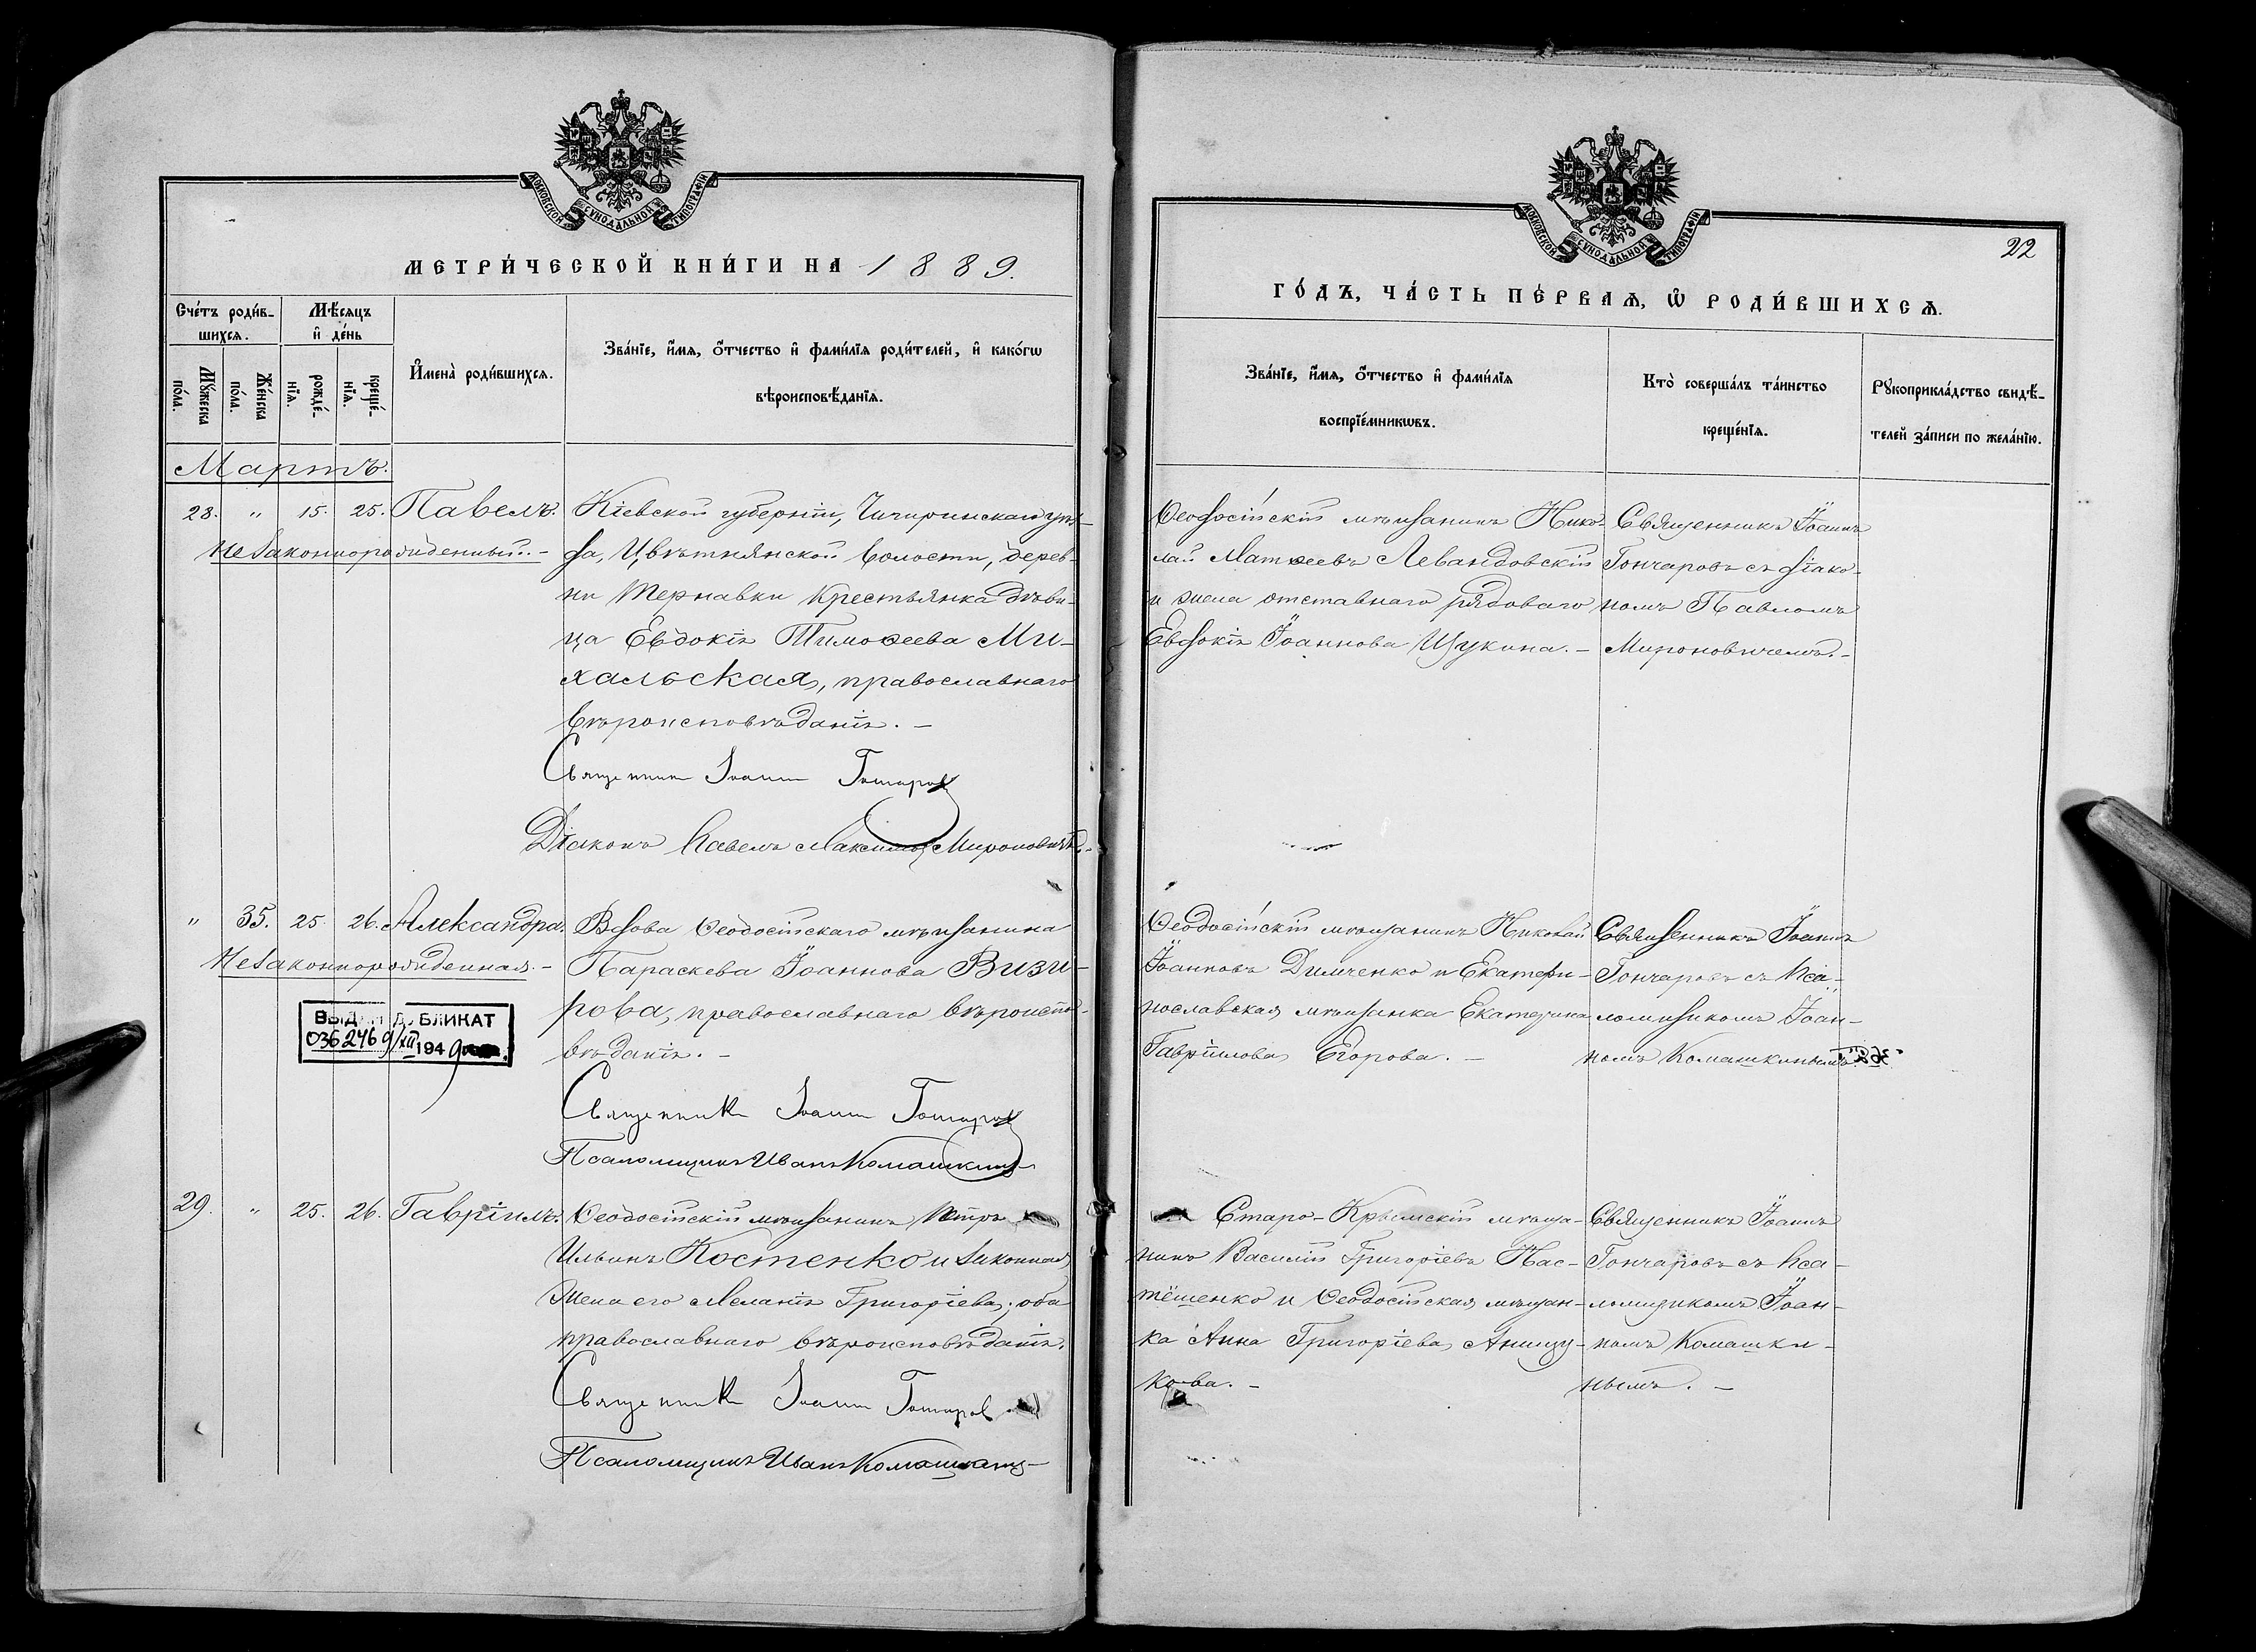 МОСКОВСКОЙ СУНОДАЛЬНОЙ ТИПОГРАФІИ
МЕТРИ́ЧЕСКОЙ КНИ́ГИ НА 1889.
Сче́тъ роди́в-
шихсѧ.
Мѣ́сѧцъ
и҆ де́нь
Мꙋ́жеска
по́ла.
Же́нска
по́ла.
рожде́-
нїѧ.
креще́-
нїѧ.
И҆мена̀ роди́вшихсѧ.
Зва́нїе, и҆́мѧ, ѻ҆́тчество и҆ фами́лїѧ роди́телей, и҆ како́гѡ
вѣроисповѣ́данїѧ.
Мартъ.
28. " 15. 25. Павелъ.
Незаконнорожденный. -
Кіевской губерніи, Чигиринскаго уѣз-
да, Цвѣтнянской волости, дерев-
ни Тернавки крестьянка дѣви-
ца Евдокія Тимоѳеева Ми-
хальская, православнаго
вѣроисповѣданія. -
Священник Іоанн Гончаров
Діаконъ Павелъ Максимов Мироновичъ. -
" 35. 25. 26. Александра.
Незаконнорожденная. -
Вдова Ѳеодосійскаго мѣщанина
Параскева Іоаннова Визи-
рова, православнаго вѣроиспо-
вѣданія. -
ВЫДАН ДУБЛИКАТ
036246 9/XII 1949
Священник Іоанн Гончаров
Псаломщикъ Иванъ Комашкинъ
29. " 25. 26. Гавріилъ.
Ѳеодосійскій мѣщанинъ Петръ
Ильинъ Костенко и законная
жена его Меланія Григоріева; оба
православнаго вѣроисповѣданія.
Священник Іоанн Гончаров
Псаломщикъ Иванъ Комашкинъ
МОСКОВСКОЙ СУНОДАЛЬНОЙ ТИПОГРАФІИ
22
ГО́ДЪ, ЧА́СТЬ ПЕ́РВАѦ, Ѡ҆ РОДИ́ВШИХСѦ.
Зва́нїе, и҆́мѧ, ѻ҆́тчество и҆ фами́лїѧ
воспрїе́мникѡвъ.
Кто̀ соверша́лъ та́инство
креще́нїѧ.
Рꙋкоприкла́дство свидѣ́-
телей за́писи по жела́нїю.
Ѳеодосійскій мѣщанинъ Нико-
лай Матѳеевъ Левандовскій
и жена отставнаго рядоваго
Евдокія Іоаннова Щукина. -
Священникъ Іоаннъ
Гончаровъ съ діако-
номъ Павломъ
Мироновичемъ. -
Ѳеодосійскій мѣщанинъ Николай
Іоанновъ Димченко и Екатери-
нославская мѣщанка Екатерина
Гавріилова Егорова. -
Священникъ Іоаннъ
Гончаровъ съ Пса-
ломщикомъ Іоан-
номъ Комашкинымъ.
Старо-Крымскій мѣща-
нинъ Василій Григоріевъ Нас-
тёшенко и Ѳеодосійская мѣщан-
ка Анна Григоріева Анищу-
кова. -
Священникъ Іоаннъ
Гончаровъ съ Пса-
ломщикомъ Іоан-
номъ Комашки-
нымъ. -